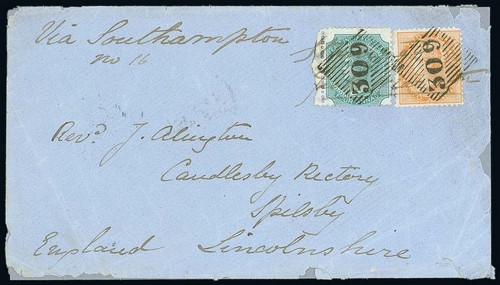 Via Southampton
no 16
309
309
Revd. J. Alington
Candlesby Rectory
Spilsby
England Lincolnshire